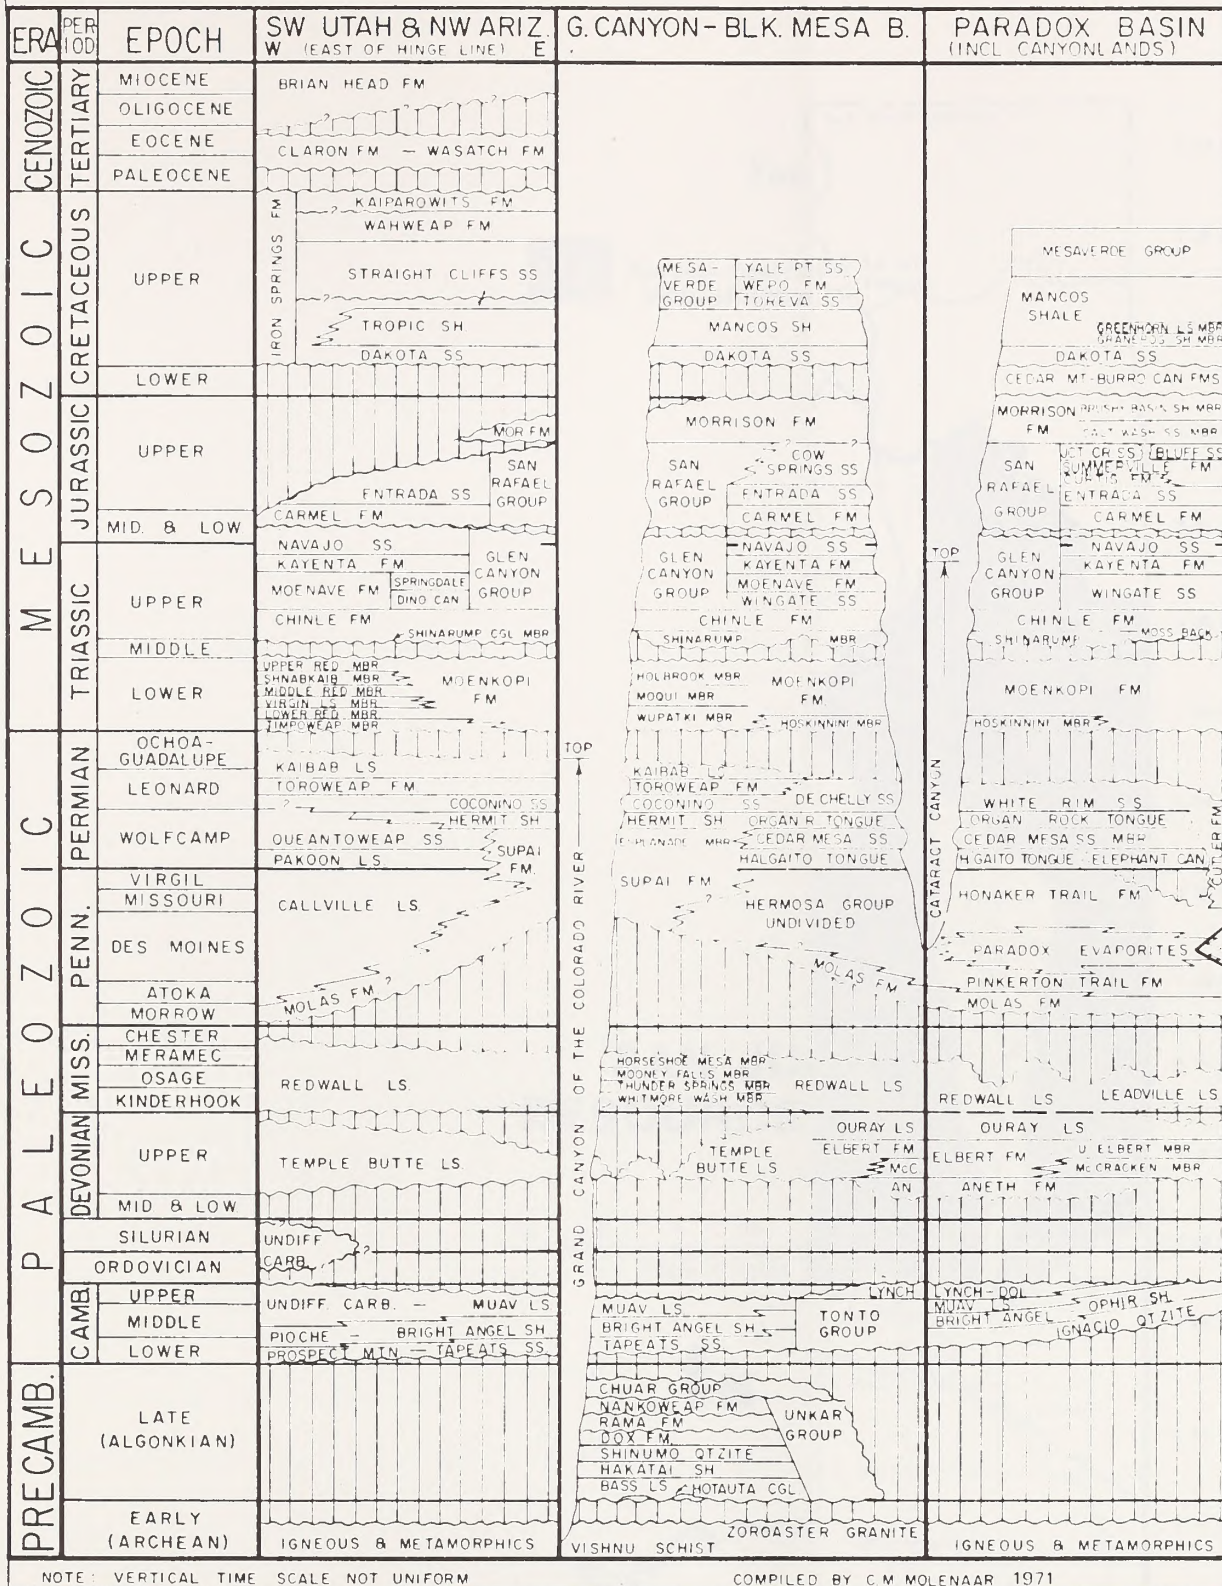 ERA
PERIOD
EPOCH
SW UTAH & NW ARIZ.
W (EAST OF HINGE LINE) E
G. CANYON - BLK. MESA B.
PARADOX BASIN
(INCL CANYONLANDS)
CENOZOIC
MESOZOIC
PALEOZOIC
PRECAMB.
TERTIARY
CRETACEOUS
JURASSIC
TRIASSIC
PERMIAN
PENN.
MISS.
DEVONIAN
CAMB.
MIOCENE
OLIGOCENE
EOCENE
PALEOCENE
UPPER
LOWER
UPPER
MID. & LOW
UPPER
MIDDLE
LOWER
OCHOA-
GUADALUPE
LEONARD
WOLFCAMP
VIRGIL
MISSOURI
DES MOINES
ATOKA
MORROW
CHESTER
MERAMEC
OSAGE
KINDERHOOK
UPPER
MID & LOW
SILURIAN
ORDOVICIAN
UPPER
MIDDLE
LOWER
LATE
(ALGONKIAN)
EARLY
(ARCHEAN)
BRIAN HEAD FM
?
?
CLARON FM - WASATCH FM
IRON SPRINGS FM
KAIPAROWITS FM
?
WAHWEAP FM
STRAIGHT CLIFFS SS
?
TROPIC SH
DAKOTA SS
MOR FM
SAN
RAFAEL
GROUP
ENTRADA SS
CARMEL FM
NAVAJO SS
KAYENTA FM
GLEN
CANYON
GROUP
MOENAVE FM
SPRINGDALE
DINO CAN
CHINLE FM
SHINARUMP CGL MBR
UPPER RED MBR
SHNABKAIB MBR
MIDDLE RED MBR
VIRGIN LS MBR
LOWER RED MBR
TIMPOWEAP MBR
MOENKOPI
FM
KAIBAB LS
TOROWEAP FM
?
COCONINO SS
HERMIT SH
QUEANTOWEAP SS
PAKOON LS
SUPAI
FM.
?
CALLVILLE LS.
MOLAS FM ?
REDWALL LS.
TEMPLE BUTTE LS.
UNDIFF
CARB.
?
UNDIFF. CARB. - MUAV LS
PIOCHE - BRIGHT ANGEL SH
PROSPECT MTN - TAPEATS SS
IGNEOUS & METAMORPHICS
MESA-
VERDE
GROUP
YALE PT SS
WEPO FM
TOREVA SS
MANCOS SH
DAKOTA SS
MORRISON FM
?
?
COW
SPRINGS SS
?
SAN
RAFAEL
GROUP
ENTRADA SS
CARMEL FM
GLEN
CANYON
GROUP
NAVAJO SS
KAYENTA FM
MOENAVE FM
WINGATE SS
CHINLE FM
SHINARUMP MBR
HOLBROOK MBR
MOQUI MBR
WUPATKI MBR
MOENKOPI
FM
HOSKINNINI MBR
TOP
GRAND CANYON OF THE COLORADO RIVER
KAIBAB LS
TOROWEAP FM
COCONINO SS
?
DE CHELLY SS
HERMIT SH
ORGAN R TONGUE
ESPLANADE MBR
CEDAR MESA SS
HALGAITO TONGUE
SUPAI FM
?
HERMOSA GROUP
UNDIVIDED
MOLAS FM
HORSESHOE MESA MBR
MOONEY FALLS MBR
THUNDER SPRINGS MBR
WHITMORE WASH MBR
REDWALL LS
OURAY LS
TEMPLE
BUTTE LS
ELBERT FM
McC
AN
LYNCH
MUAV LS
BRIGHT ANGEL SH
TAPEATS SS
TONTO
GROUP
CHUAR GROUP
NANKOWEAP FM
RAMA FM
DOX FM
SHINUMO QTZITE
HAKATAI SH
BASS LS
HOTAUTA CGL
UNKAR
GROUP
ZOROASTER GRANITE
VISHNU SCHIST
MESAVERDE GROUP
MANCOS
SHALE
GREENHORN LS MBR
GRANEROS SH MBR
DAKOTA SS
CEDAR MT-BURRO CAN FMS
MORRISON
FM
BRUSHY BASIN SH MBR
SALT WASH SS MBR
SAN
RAFAEL
GROUP
JCT CR SS
BLUFF SS
SUMMERVILLE FM
CURTIS FM
ENTRADA SS
CARMEL FM
TOP
CATARACT CANYON
GLEN
CANYON
GROUP
NAVAJO SS
KAYENTA FM
WINGATE SS
CHINLE FM
SHINARUMP
MOSS BACK
MOENKOPI FM
HOSKINNINI MBR
WHITE RIM SS
ORGAN ROCK TONGUE
CEDAR MESA SS MBR
H GAITO TONGUE
ELEPHANT CAN
CUTLER FM
HONAKER TRAIL FM
PARADOX EVAPORITES
PINKERTON TRAIL FM
MOLAS FM
REDWALL LS
LEADVILLE LS
OURAY LS
ELBERT FM
U ELBERT MBR
McCRACKEN MBR
ANETH FM
LYNCH-DOL
MUAV LS
BRIGHT ANGEL
OPHIR SH
IGNACIO QTZITE
IGNEOUS & METAMORPHICS
NOTE: VERTICAL TIME SCALE NOT UNIFORM
COMPILED BY C M MOLENAAR 1971